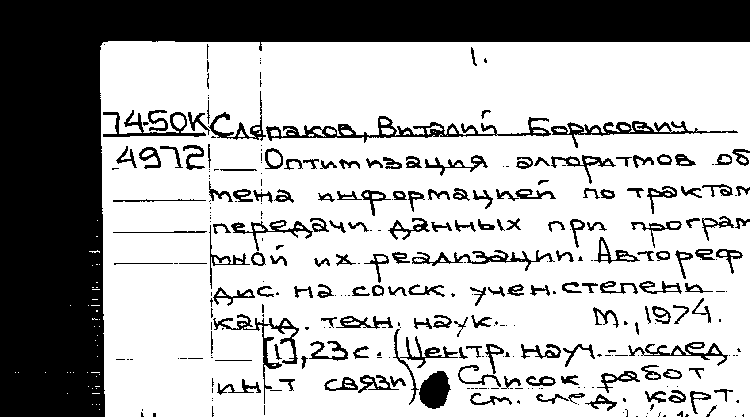 1.
74-50К Слепаков, Виталий Борисович.
4972 Оптимизация алгоритмов об
мена информацией по трактам
передачи данных при програм
мной их реализации. Автореф
дис. на соиск. учен. степени
канд. техн. наук. М., 1974.
[1], 23 с. (Центр. науч.-исслед.
ин-т связи) Список работ
см. след. карт.